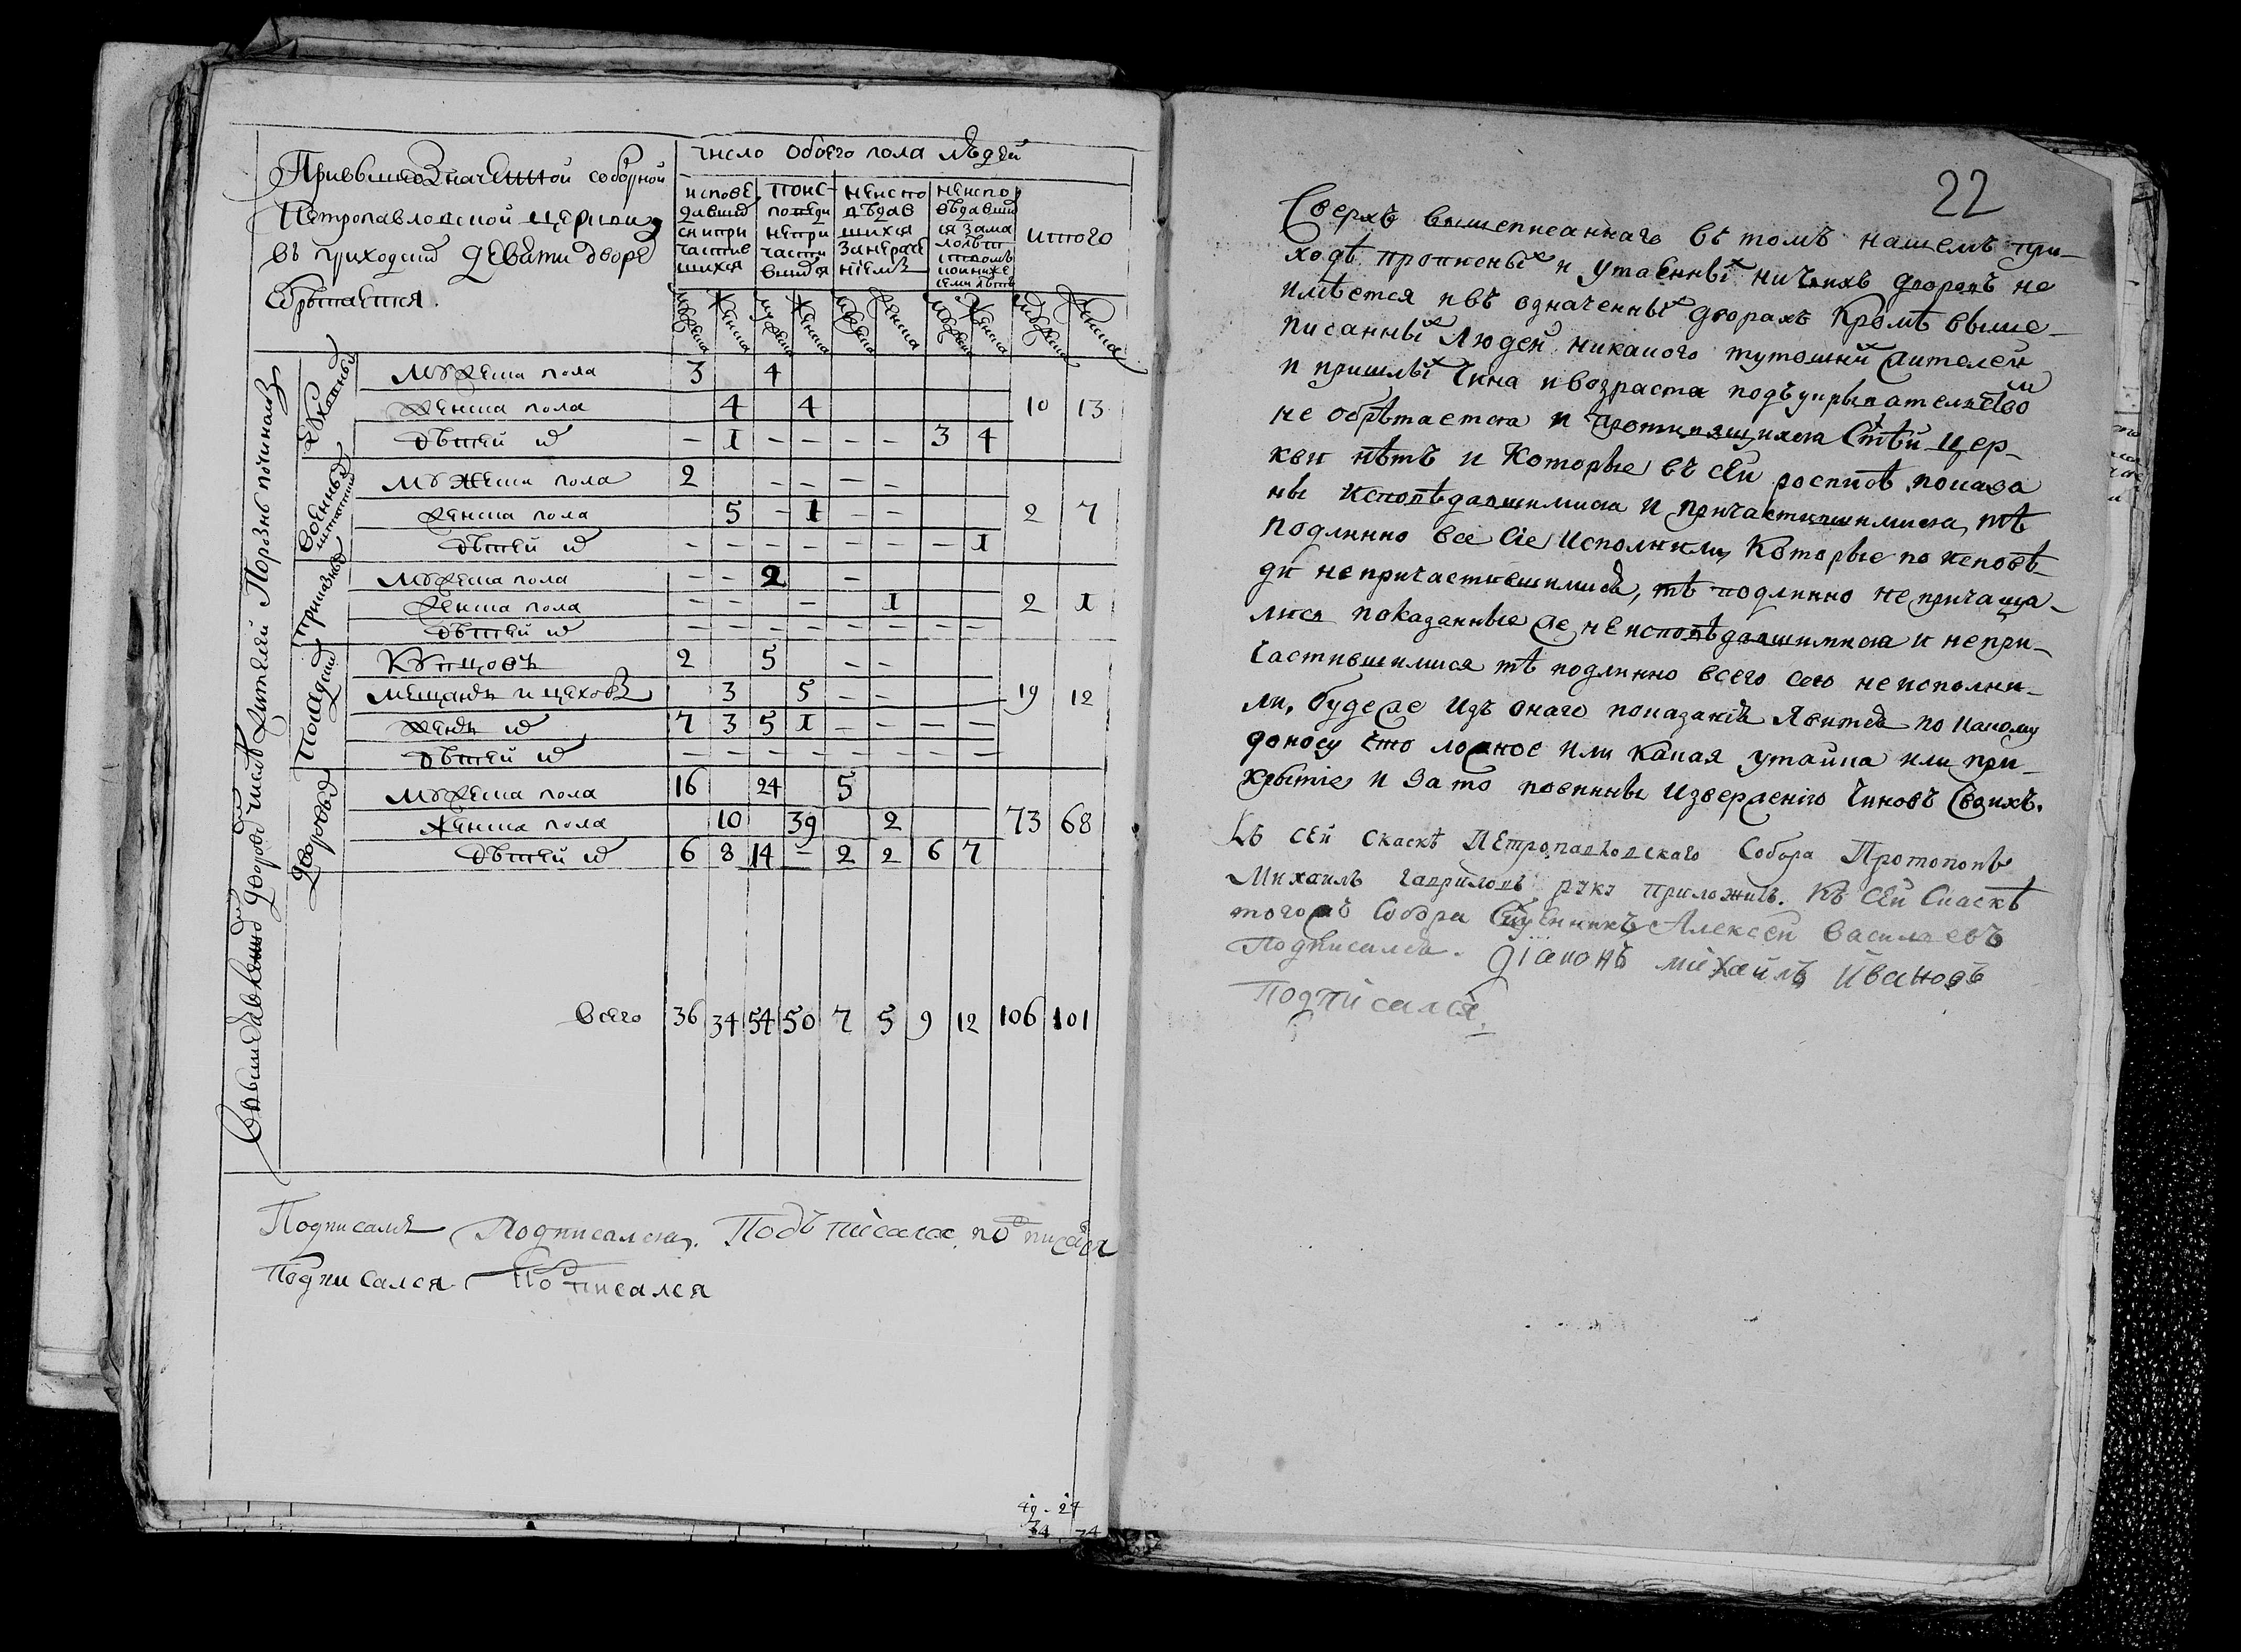 Привышеозначенной соборной
Петропавловской церкви
въ приходских девяти дворе
обрѣтается.
число обоего пола людей
исповедавших
сиипри
частив
шихся
поис
поведи
непри
части
вшихся
неиспо
вѣдав
шихся
занераче
ніемъ
неиспо
вѣдавших
ся зама
лолѣт
ством
итого
мужеска женска мужеска женска мужеска женска мужеска женска мужеска женска
Духовных
мужеска пола 3 4
женска пола 4 4 10 13
дѣтей их – 1 – – – – 3 4
военных
мужеска пола 2 – – – –
женска пола 5 – 1 – – 2 7
дѣтей их – – – – – – – 1
приказных
мужеска пола – – 2 –
женска пола – – – 1 2 1
дѣтей их – – – – – – – –
Посадских
Купцовъ 2 5 – –
мещанъ и цехов 3 5 – – 19 12
женъ их 7 3 5 1 – – – –
дѣтей их – – – – – – – –
дворовых
мужеска пола 16 24 5
женска пола 10 39 2 73 68
дѣтей их 6 8 14 – 2 2 6 7
всего 36 34 54 50 7 5 9 12 106 101
Подписался Подписался. Подъписалсѧ подписался
Подписался Подписался
49 - 27
34 74
22
Сверхъ вышеписаннаго въ томъ нашемъ при-
ходѣ прописных и утаенных ничьихъ дворовъ не
имѣется ивъ означенных дворахъ кромѣ выше-
писанных людей никакого тутошних жителей
и пришлых чина ивозраста подъукрывательством
не обрѣтается и противящихся Стѣй цер-
кви нѣтъ и которые въ сей росписѣ показа
ны исповѣдавшимися и причастившимися, тѣ
подлинно все сіе исполнили, которые по исповѣ-
ди непричастившимися, тѣ подлинно непричаща-
лися показанные же неисповѣдавшимися и непри-
частившимися тѣ подлинно всего сего неисполни-
ли. буде же изъ онаго показанія явится по какому
доносу что ложное или какая утайка или при-
крытіе и зато повинны извержению чиновъ своихъ.
Къ сей скаскѣ Петропавловскаго собора Протопопъ
Михаилъ гавриловъ руку приложилъ. Къ сей скаскѣ
тогожъ собора Сщенникъ Алексей васильевъ
подписался. дїаконъ михаилъ ивановъ
подписался.